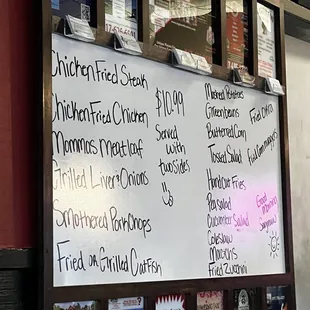 Chicken Fried Steak
Chicken Fried Chicken
Mommas Meatloaf
Grilled Liver & Onions
Smothered Pork Chops
Fried or Grilled Catfish
$10.99
Served
with
two sides
Mashed Potatoes
Greenbeans
Buttered Corn
Tossed Salad
Handcut Fries
Pea salad
Cucumber Salad
Coleslaw
Fried Zucchini
Fried Okra
Good
Morning
Sunshine